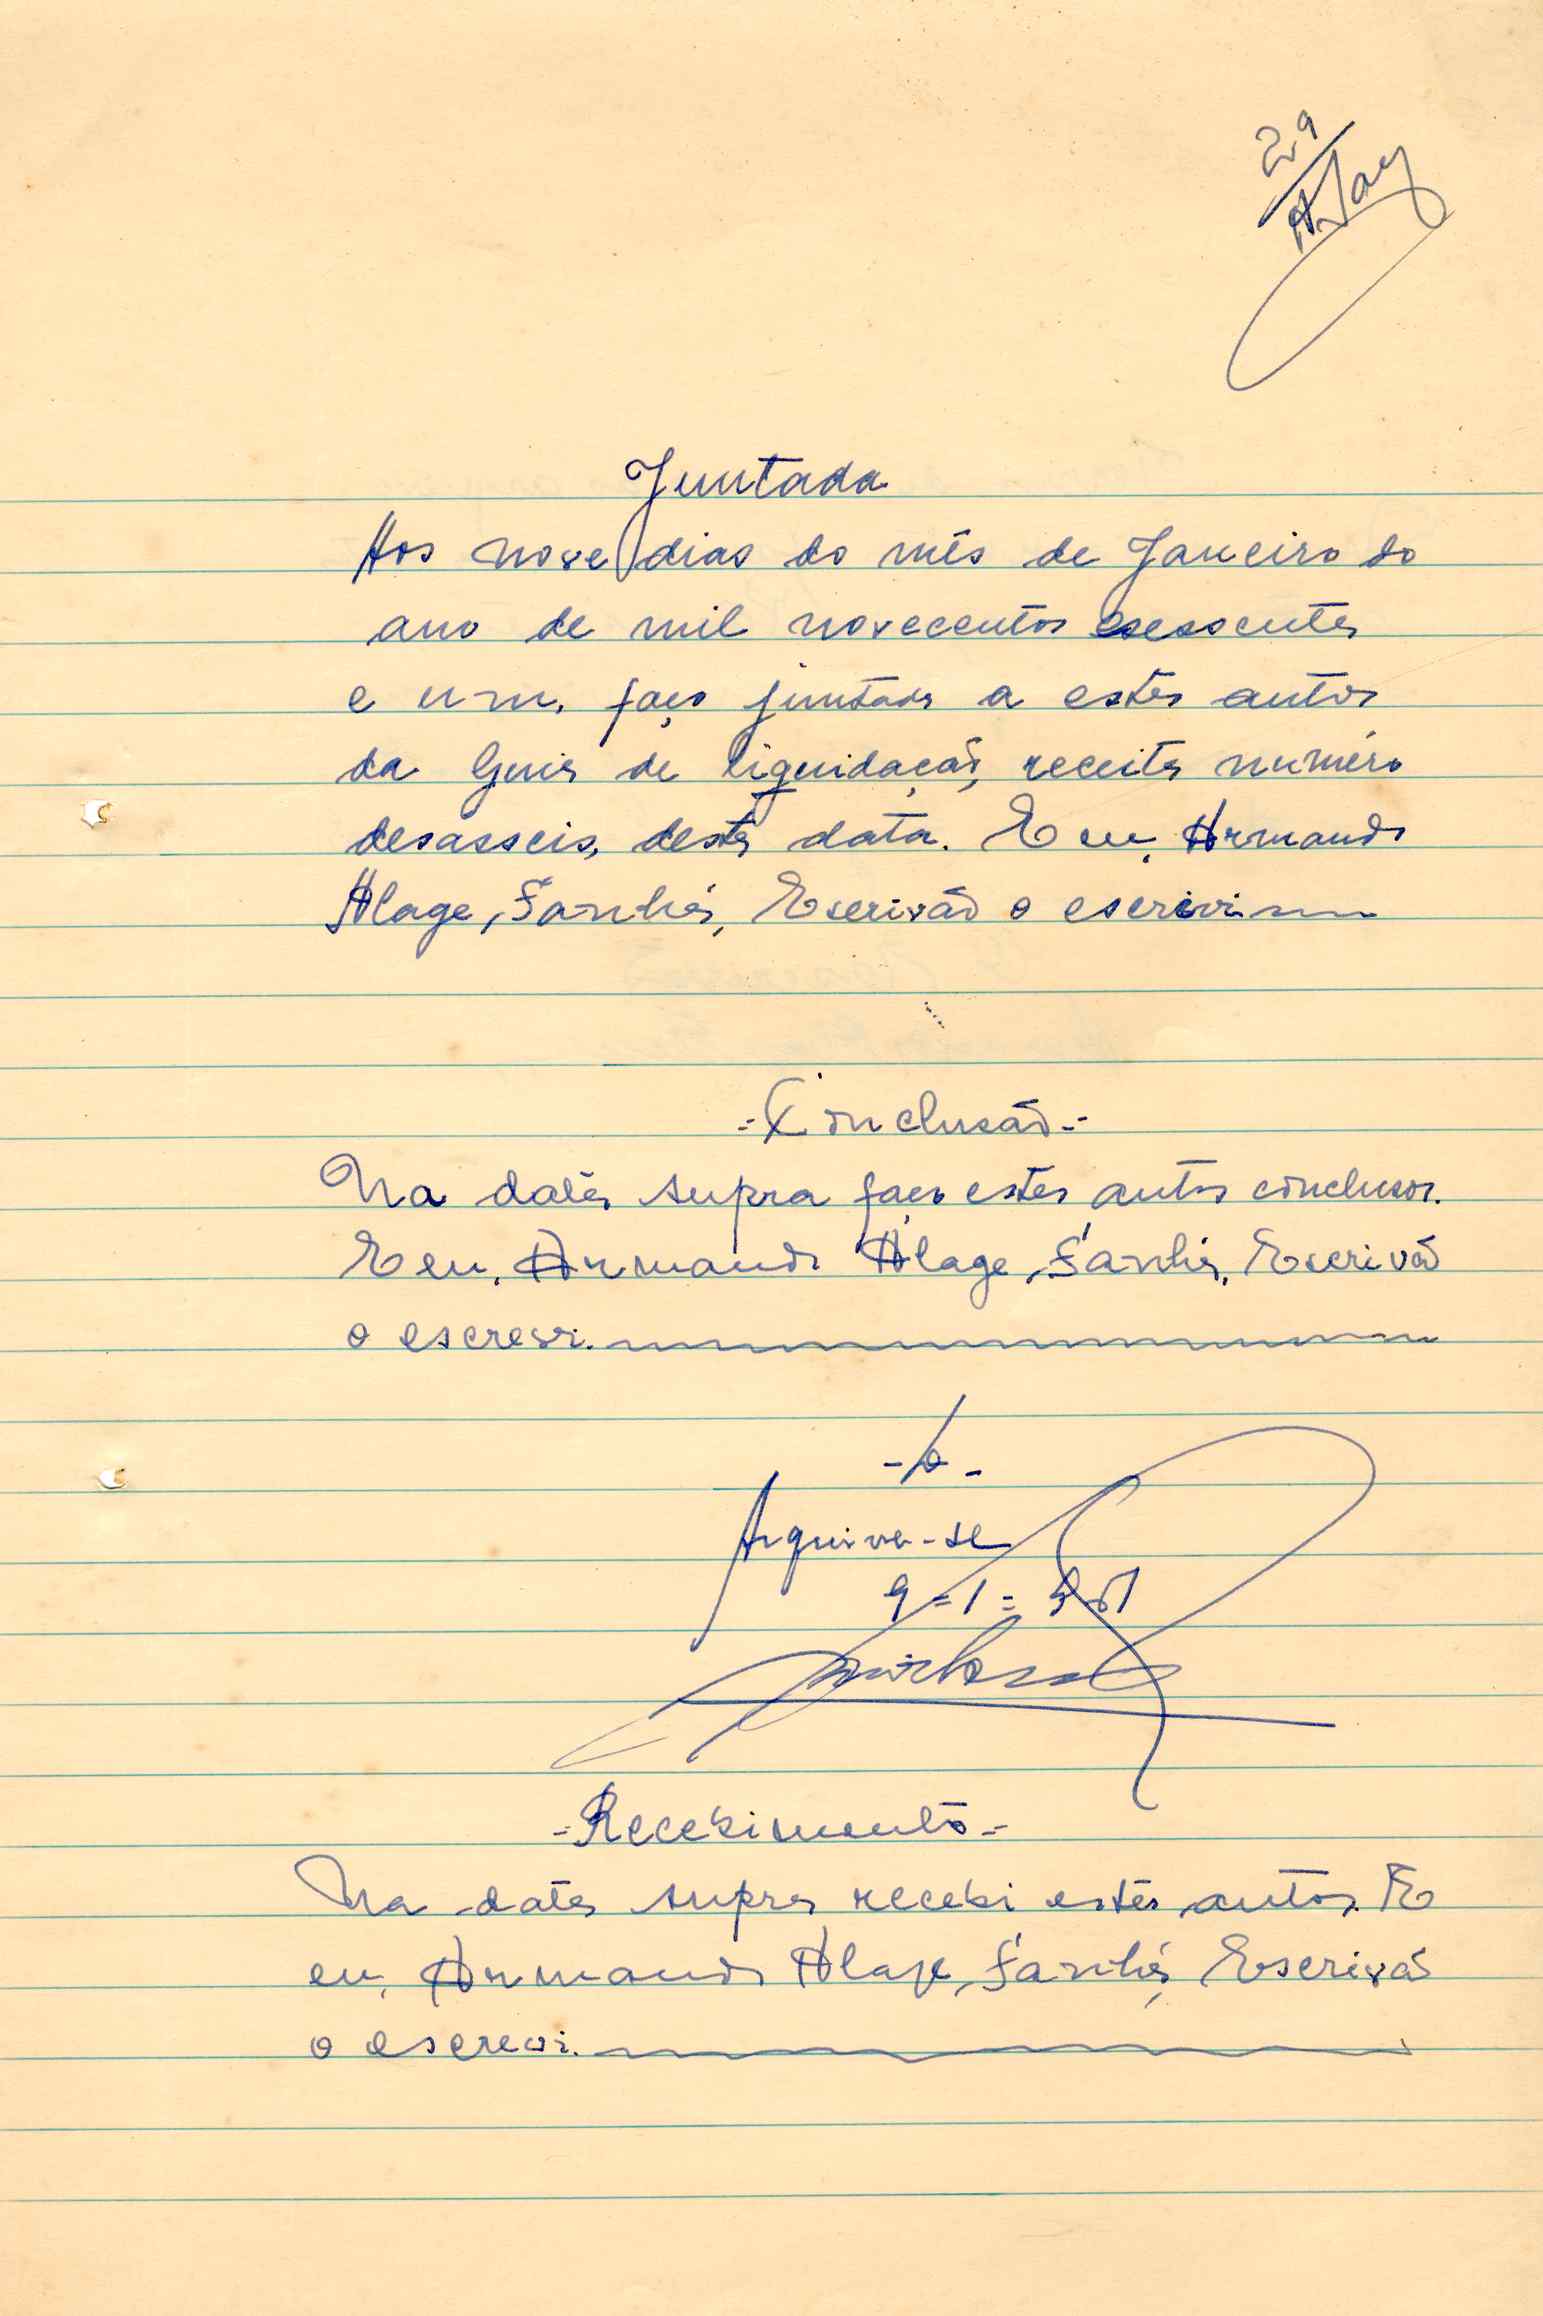 29
Juntada
Aos nove dias do mês de Janeiro do
ano de mil novecentos e sessenta
e um, faço juntada a estes autos
da Guia de liquidação, receita numéro
desasseis, desta data. E eu, Armando
Alage, Sanhá, Escrivão o escrevi
-Conclusão-
Na data supra faço estes autos conclusos.
E eu, Armando Alage, Sanhá, Escrivão
o escrevi.
Arquive-se
9-1-961
-Recebimento-
Na data supra recebi estes autos. E
eu, Armando Alage, Sanhá, Escrivão
o escrevi.